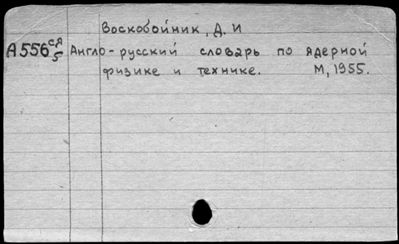 Воскобойник, Д. И
А556 ся/5 Англо-русский словарь по ядерной
физике и технике. М, 1955.